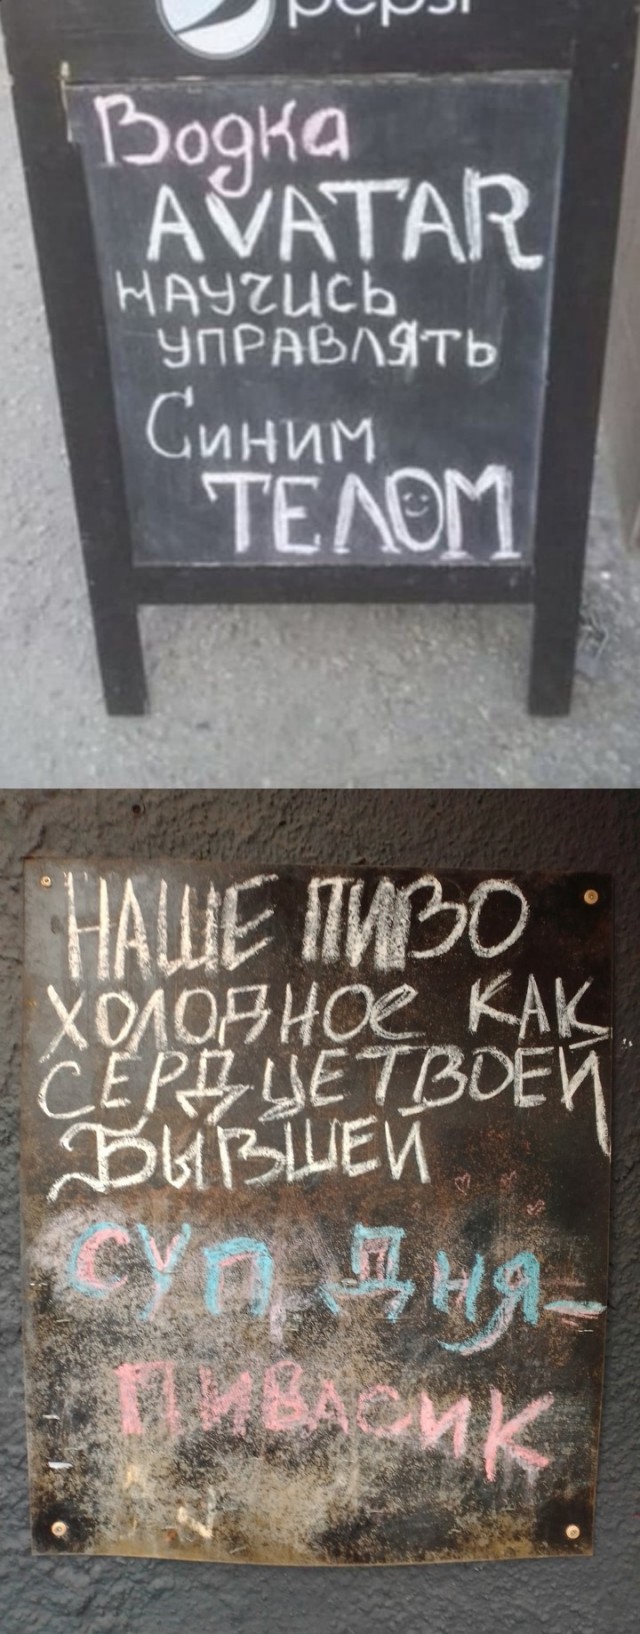 pepsi
Водка
AVATAR
научись
управлять
Синим
ТЕЛОМ
НАШЕ ПИВО
ХОЛОДНОЕ КАК
СЕРДЦЕ ТВОЕЙ
БЫВШЕЙ
СУП ДНЯ-
ПИВАСИК